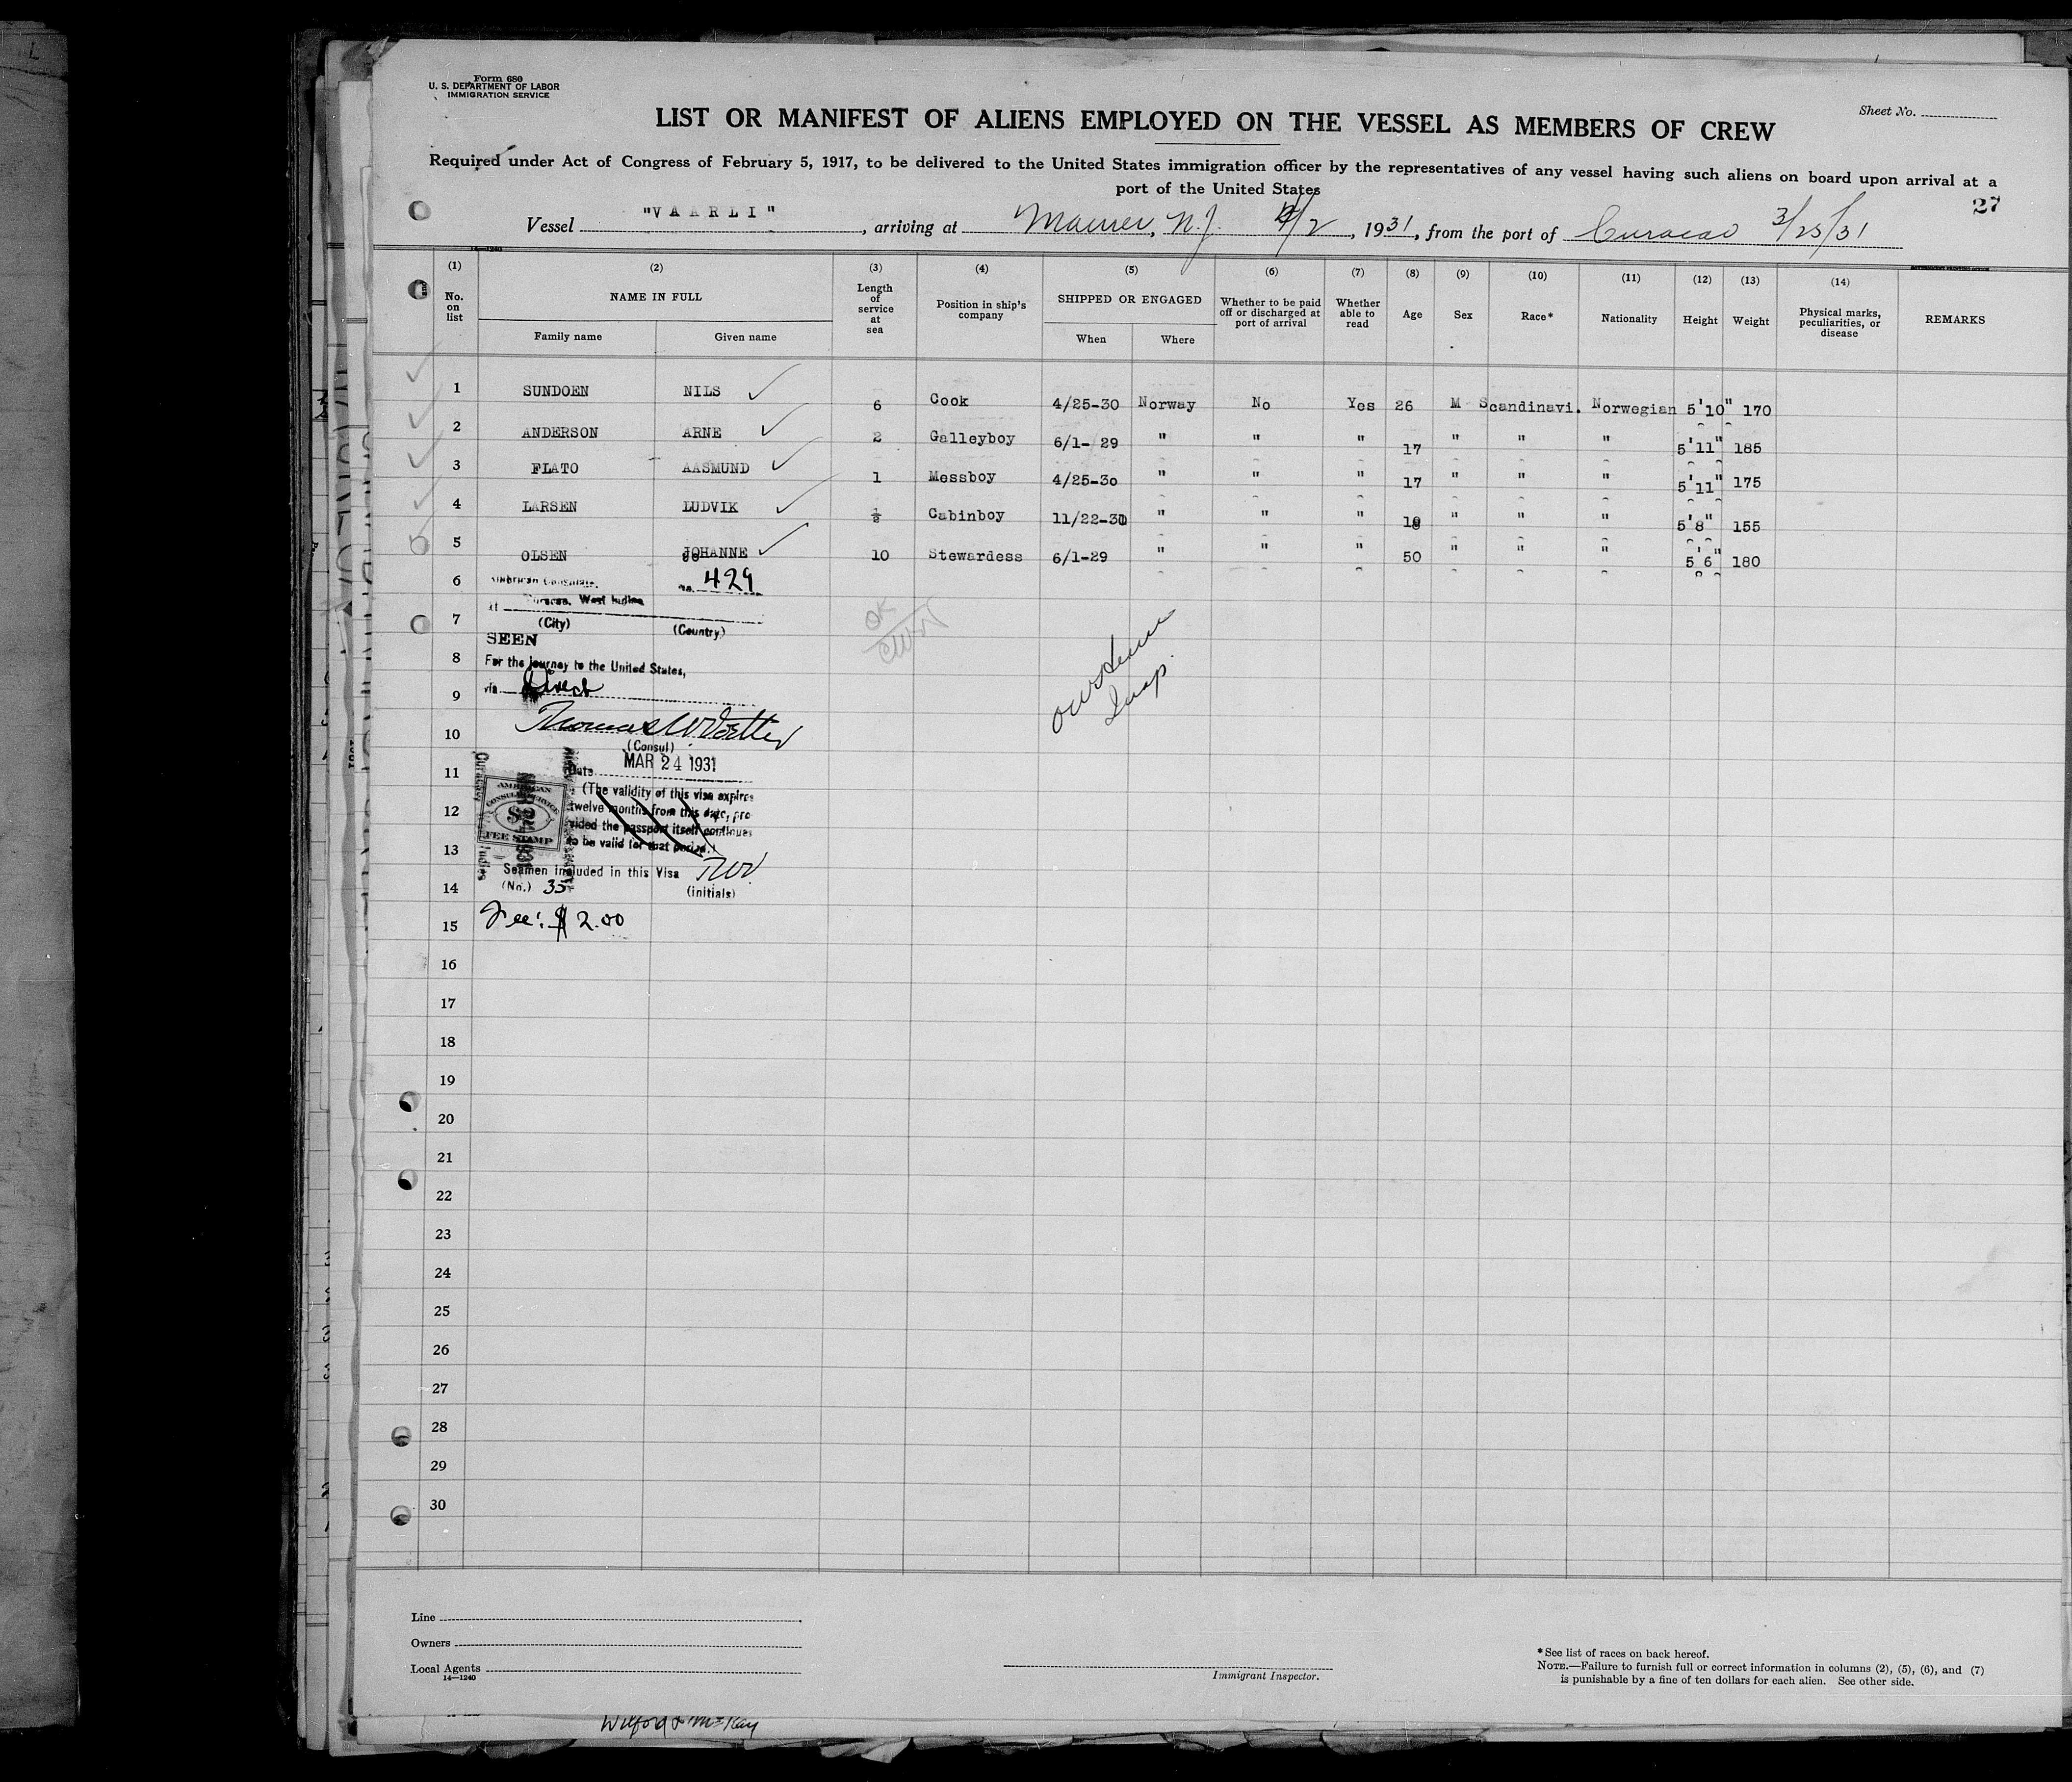 Form 680
U. S. DEPARTMENT OF LABOR
IMMIGRATION SERVICE
Sheet No.
LIST OR MANIFEST OF ALIENS EMPLOYED ON THE VESSEL AS MEMBERS OF CREW
Required under Act of Congress of February 5, 1917, to be delivered to the United States immigration officer by the representatives of any vessel having such aliens on board upon arrival at a
port of the United States
27
Vessel "VAARLI", arriving at Maurer, N.J. 4/2, 1931, from the port of Curacao 3/25/31
14—1240
(1) (2) (3) (4) (5) (6) (7) (8) (9) (10) (11) (12) (13) (14)
No. on list NAME IN FULL Length of service at sea Position in ship's company SHIPPED OR ENGAGED Whether to be paid off or discharged at port of arrival Whether able to read Age Sex Race* Nationality Height Weight Physical marks, peculiarities, or disease REMARKS
Family name Given name When Where
1 SUNDOEN NILS 6 Cook 4/25-30 Norway No Yes 26 M Scandinavi. Norwegian 5'10" 170
2 ANDERSON ARNE 2 Galleyboy 6/1- 29 " " " 17 " " " 5'11" 185
3 FLATO AASMUND 1 Messboy 4/25-30 " " " 17 " " " 5'11" 175
4 LARSEN LUDVIK ½ Cabinboy 11/22-30 " " " " " " 5'8" 155
5 OLSEN JOHANNE 10 Stewardess 6/1-29 " " " 50 " " " 5'6" 180
6 American Consulate, No. 429
at Curacao, West Indies
7 (City) (Country)
SEEN
8 For the journey to the United States,
9 via Direct
10
(Consul)
11 Date MAR 24 1931
(The validity of this visa expires
12 twelve months from this date, pro
vided the passport itself continues
13 to be valid for that period.)
AMERICAN
CONSULAR SERVICE
$2
FEE STAMP
Seamen included in this Visa
14 (No.) 35 (initials)
15 Fee: $2.00
OK
16
17
18
19
20
21
22
23
24
25
26
27
28
29
30
Line
Owners
Local Agents
14—1240
Immigrant Inspector.
*See list of races on back hereof.
NOTE.—Failure to furnish full or correct information in columns (2), (5), (6), and (7)
is punishable by a fine of ten dollars for each alien. See other side.